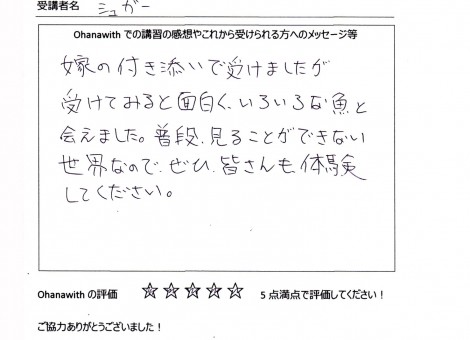 受講者名 シュガー
Ohanawith での講習の感想やこれから受けられる方へのメッセージ等
嫁の付き添いで受けましたが
受けてみると面白く、いろいろな魚と
会えました。普段、見ることができない
世界なので、ぜひ、皆さんも、体験
してください。
Ohanawith の評価 ☆☆☆☆☆ 5 点満点で評価してください!
ご協力ありがとうございました!